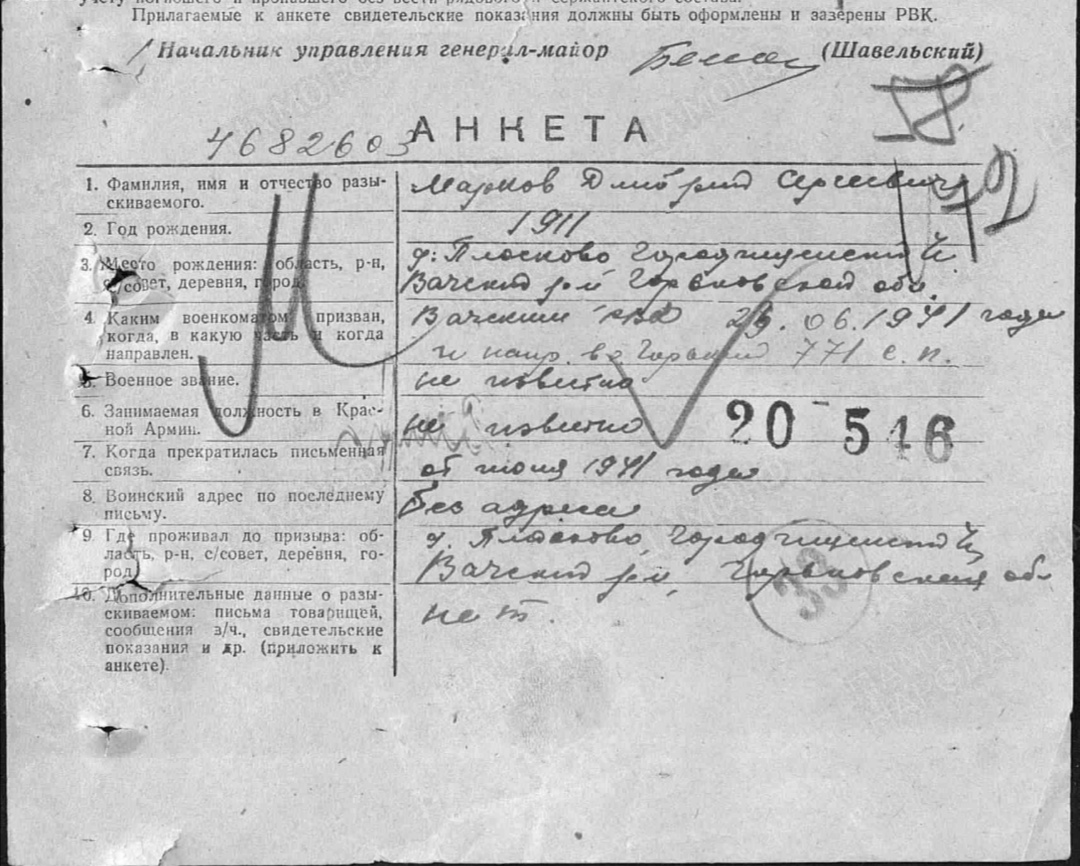 Прилагаемые к анкете свидетельские показания должны быть оформлены и заверены РВК.
Начальник управления генерал-майор (Шавельский)
58
4682603 АНКЕТА
1. Фамилия, имя и отчество разы-
скиваемого.
Марков Дмитрий Сергеевич
2. Год рождения.
1911
3. Место рождения: область, р-н,
с/совет, деревня, город.
д. Пласково Городищенский
Вачский р-н Горьковской обл.
4. Каким военкоматом призван,
когда, в какую часть и когда
направлен.
Вачский РВК 26.06.1941 года
и напр. в г Горький 771 с.п.
5. Военное звание.
не известно
6. Занимаемая должность в Крас-
ной Армии.
не известно
20 546
7. Когда прекратилась письменная
связь.
от июня 1941 года
8. Воинский адрес по последнему
письму.
Без адреса
9. Где проживал до призыва: об-
ласть, р-н, с/совет, деревня, го-
род.
д. Пласково, Городищенский
Вачский р-н, Горьковская об.
33
10. Дополнительные данные о разы-
скиваемом: письма товарищей,
сообщения в/ч., свидетельские
показания и др. (приложить к
анкете).
нет.